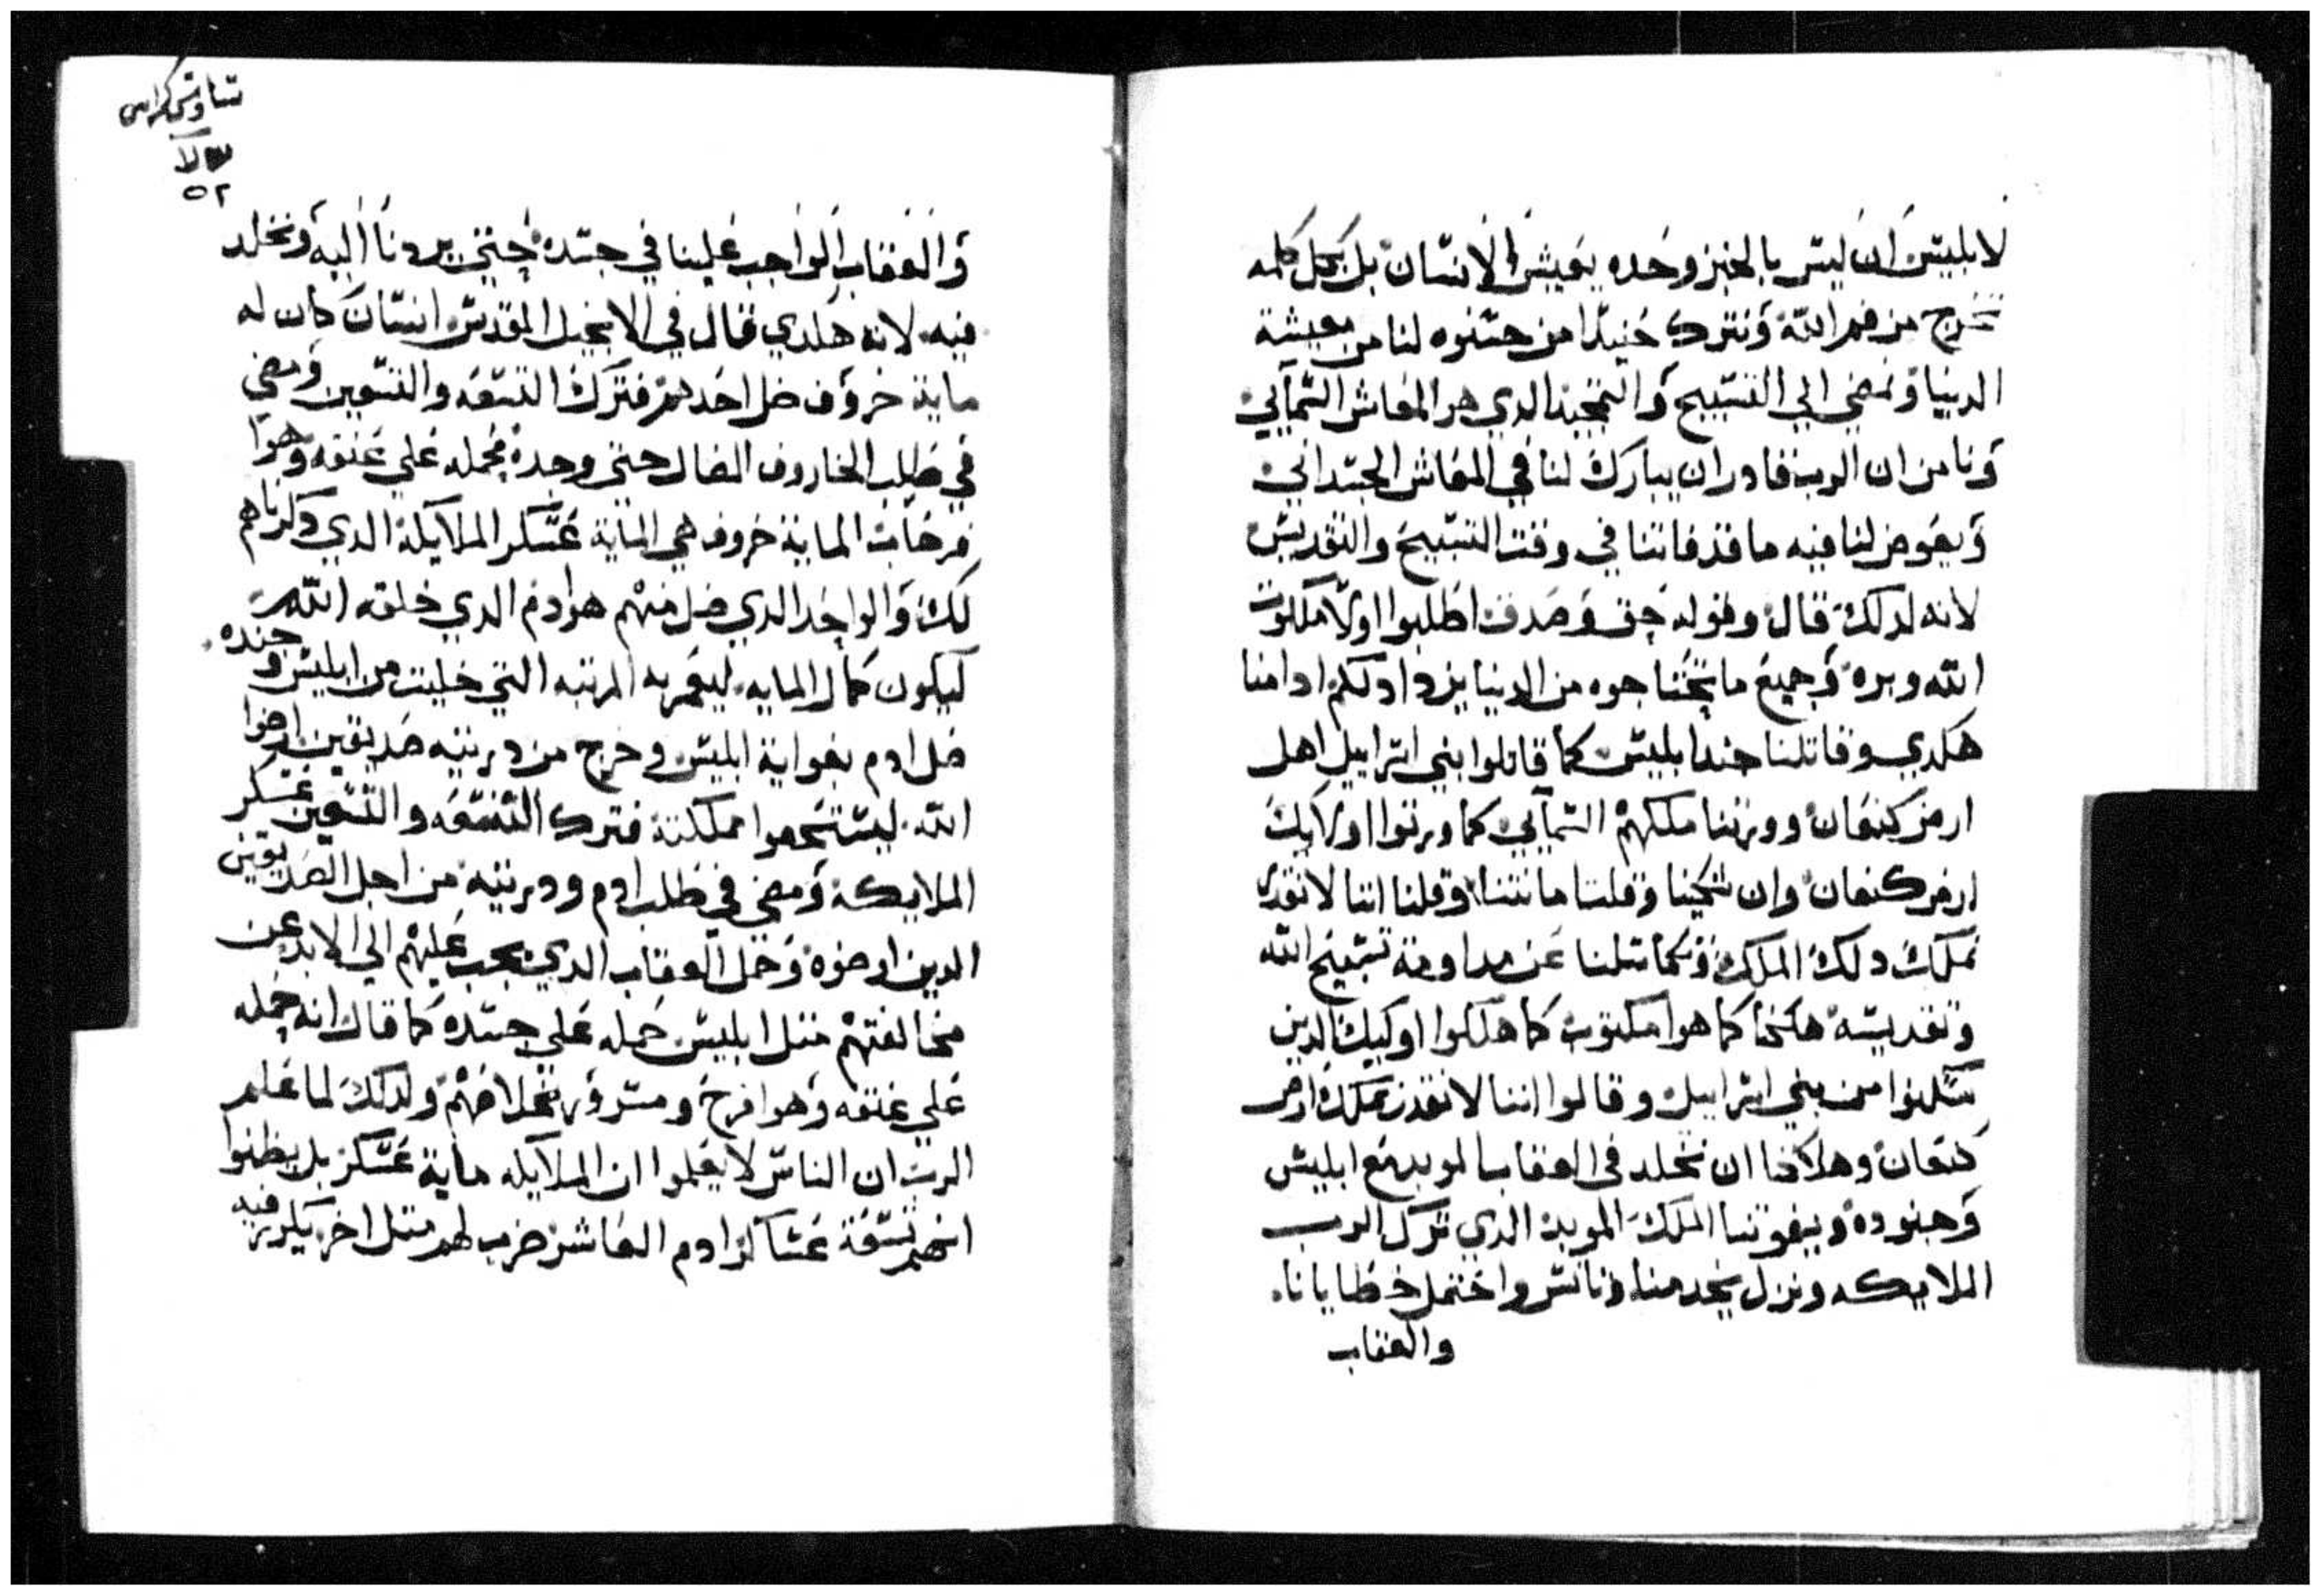 لابليس ان ليس بالخبز وحده يعيش الانسان بل بكل كلمه
تخرج من فم الله ونترك حنيدا من حسنوه لنا من معيشة
الدنيا ونمضي الي التسبيح والتمجيد الدي هو المعاش السمآيي
ونامن ان الرب قادر ان يبارك لنا في المعاش الجسداني
ويعوض لنا فيه ما قد فاتنا في وقت التسبيح والتقديس
لانه لدلك قال وقوله حق وصدق اطلبوا اولا ملكوت
الله وبره وجميع ما تحتاجوه من الدنيا يزداد لكم ادا منا
هكدي وقاتلنا جند ابليس كما قاتلوا بني اسراييل اهل
ارض كنعان وورتنا ملكهم السمآيي كما ورتوا اولايك
ارض كنعان وان شكينا وقلت امانتنا وقلنا اننا لا نقدر
نملك دلك الملك وتكاسلنا عن مداومة تسبيح الله
وتقديسه هلكنا كما هوا مكتوب كما هلكوا اوليك الدين
شكوا من بني اسراييل وقالوا اننا لا نقدر نملك ارض
كنعان وهلاكنا ان نخلد في العقاب الموبد مع ابليس
وجنوده ويفوتنا الملك الموبد الدي ترك الرب
الملايكه ونزل يخدمنا وتانس واحتمل خطايانا.
والعقاب
تتاوس كراس
لا
٥٢
والعقاب الواجب علينا في جسده حتي يردنا اليه ونخلد
فيه. لانه هكدي قال في الانجيل المقدس انسان كان له
ماية خروف ضل احدهم فترك التسعه والتسعين ومضي
في طلب الخاروف الضال حتي وجده فحمله علي عنقه وهوا
فرحان الماية خروف هي الماية عسكر الملآيكة الدي دكرناهم
لك والواحد الدي ضل منهم هو ادم الدي خلقه الله
ليكون كمال المايه ليعمر به المرتبه التي خليت من ابليس وجنده.
ضل ادم بغواية ابليس وخرج من دريته صديقين ارضوا
الله. ليستحموا مملكتة فترك التسعه والتسعين عسكر
الملايكة ومضي في طلب ادم ودريته من اجل الصديقين
الدين ارضوه وحمل العقاب الدي يجب عليهم الي الابد عن
مخالفتهم متل ابليس حمله علي جسده كما قال انه حمله
علي عنقه وهوا فرح ومسرور بخلاصهم ولدلك لما علم
الرب ان الناس لا يعلموا ان الملآيكه ماية عسكر بل يظنوا
انهم تسعة عساكر وادم العاشر ضرب لهم متل اخر يكرز فيه